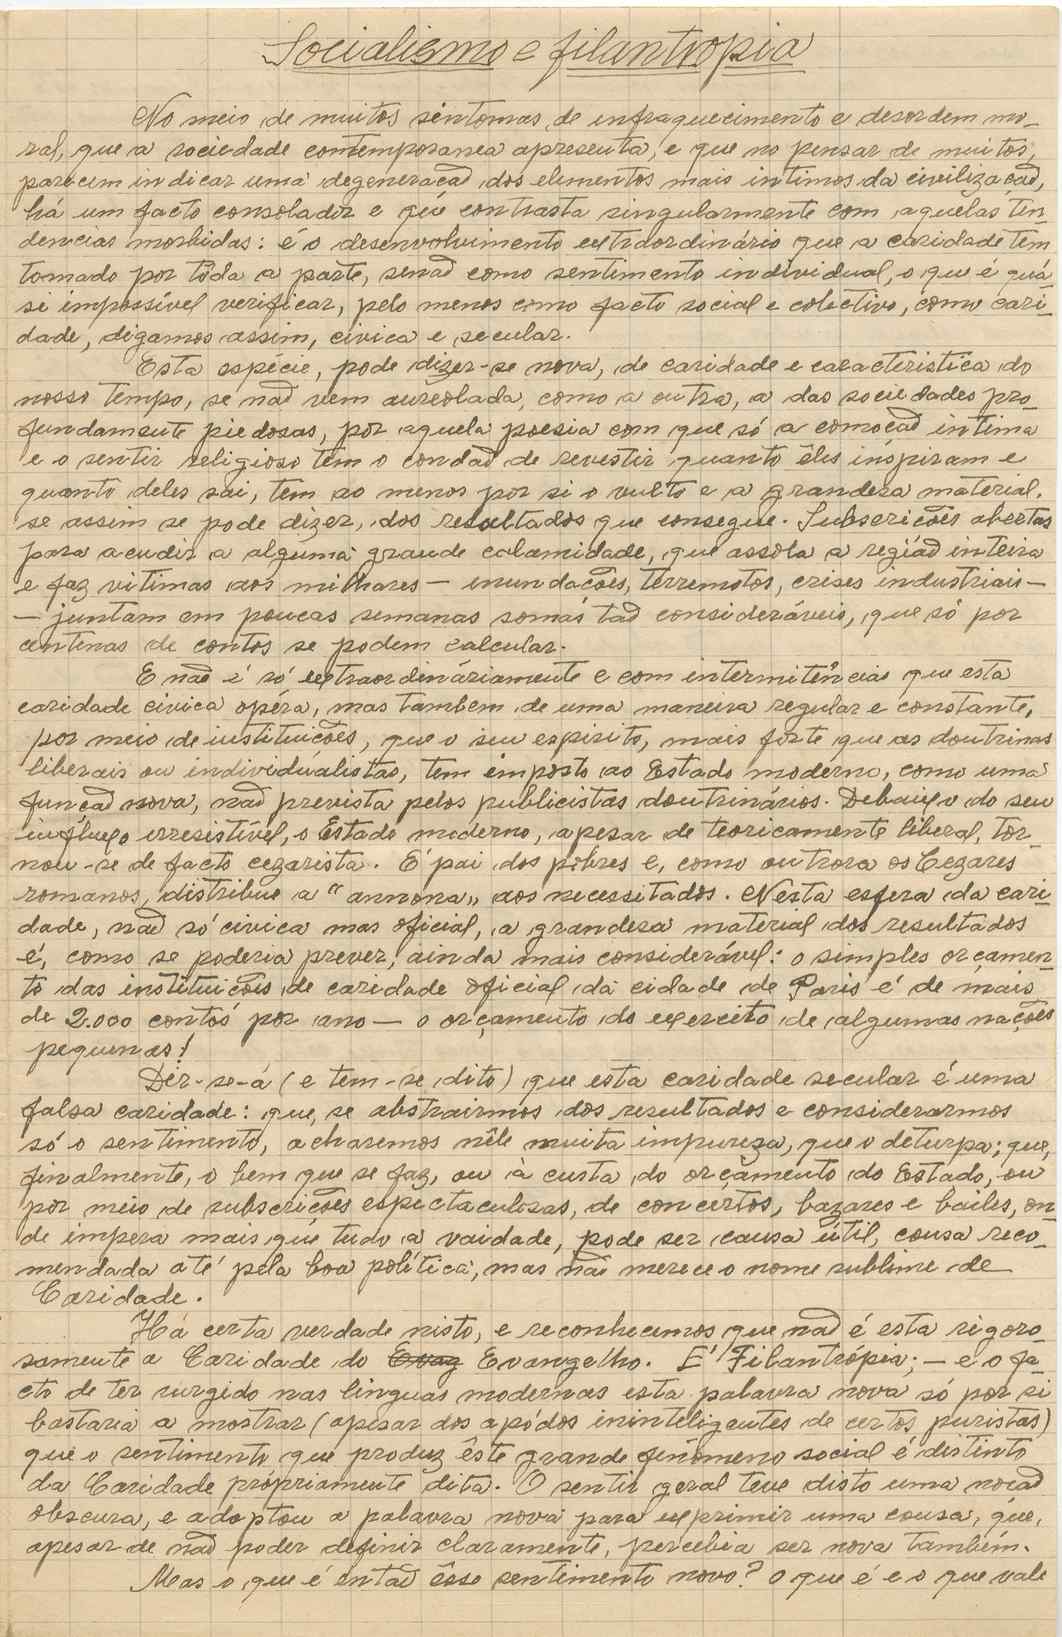 Socialismo e filantropia
No meio de muitos sintomas de infraquecimento e desordem mo-
ral, que a sociedade contemporanea apresenta, e que no pensar de muitos,
parecem indicar uma degeneração dos elementos mais intimos da civilização,
há um facto consolador e que contrasta singularmente com aquelas ten-
dencias morbidas: é o desenvolvimento extraordinário que a caridade tem
tomado por tôda a parte, senão como sentimento individual, o que é quá-
si impossível verificar, pelo menos como facto social e colectivo, como cari-
dade, digamos assim, civica e secular.
Esta espécie, pode dizer-se nova, de caridade e caracteristica do
nosso tempo, se não vem aureolada, como a outra, a das sociedades pro-
fundamente piedosas, por aquela poesia com que só a comoção intima
e o sentir religioso têm o condão de revestir quanto êles inspiram e
quanto deles sai, tem ao menos por si o vulto e a grandesa material,
se assim se pode dizer, dos resultados que consegue. Subscrições abertas
para acudir a alguma grande calamidade, que assola a região inteira
e faz vitimas aos milhares — inundações, terremotos, crises industriais —
— juntam em poucas semanas somas tão consideráveis, que só por
centenas de contos se podem calcular.
E não é só extraordináriamente e com intermitências que esta
caridade civica opéra, mas tambem de uma maneira regular e constante,
por meio de instituições, que o seu espirito, mais forte que as doutrinas
liberais ou individualistas, tem imposto ao Estado moderno, como uma
função nova, não prevista pelos publicistas doutrinários. Debaixo do seu
influxo irresistível, o Estado moderno, apesar de teoricamente liberal, tor-
nou-se de facto cezarista. É pai dos pobres e, como outrora os Cezares
romanos, distribue a "annona" aos necessitados. Nesta esfera da cari-
dade, não só civica mas oficial, a grandesa material dos resultados
é, como se poderia prever, ainda mais considerável: o simples orçamen-
to das instituições de caridade oficial da cidade de Paris é de mais
de 2.000 contos por ano — o orçamento do exercito de algumas nações
pequenas!
Dir-se-á (e tem-se dito) que esta caridade secular é uma
falsa caridade: que, se abstrairmos dos resultados e considerarmos
só o sentimento, acharemos nêle muita impureza, que o deturpa; que,
finalmente, o bem que se faz, ou à custa do orçamento do Estado, ou
por meio de subscrições espectaculosas, de concertos, bazares e bailes, on-
de impera mais que tudo a vaidade, pode ser causa útil, cousa reco-
mendada até pela boa política, mas não merece o nome sublime de
Caridade.
Há certa verdade nisto, e reconhecemos que não é esta rigoro-
samente a Caridade do Evag Evangelho. É Filantrópia; — e o fa-
cto de ter surgido nas linguas modernas esta palavra nova só por si
bastaria a mostrar (apesar dos apódos ininteligentes de certos puristas)
que o sentimento que produz êste grande fenomeno social é distinto
da Caridade própriamente dita. O sentir geral teve disto uma noção
obscura, e adoptou a palavra nova para exprimir uma cousa, que,
apesar de não poder definir claramente, percebia ser nova também.
Mas o que é então êsse sentimento novo? o que é e o que vale